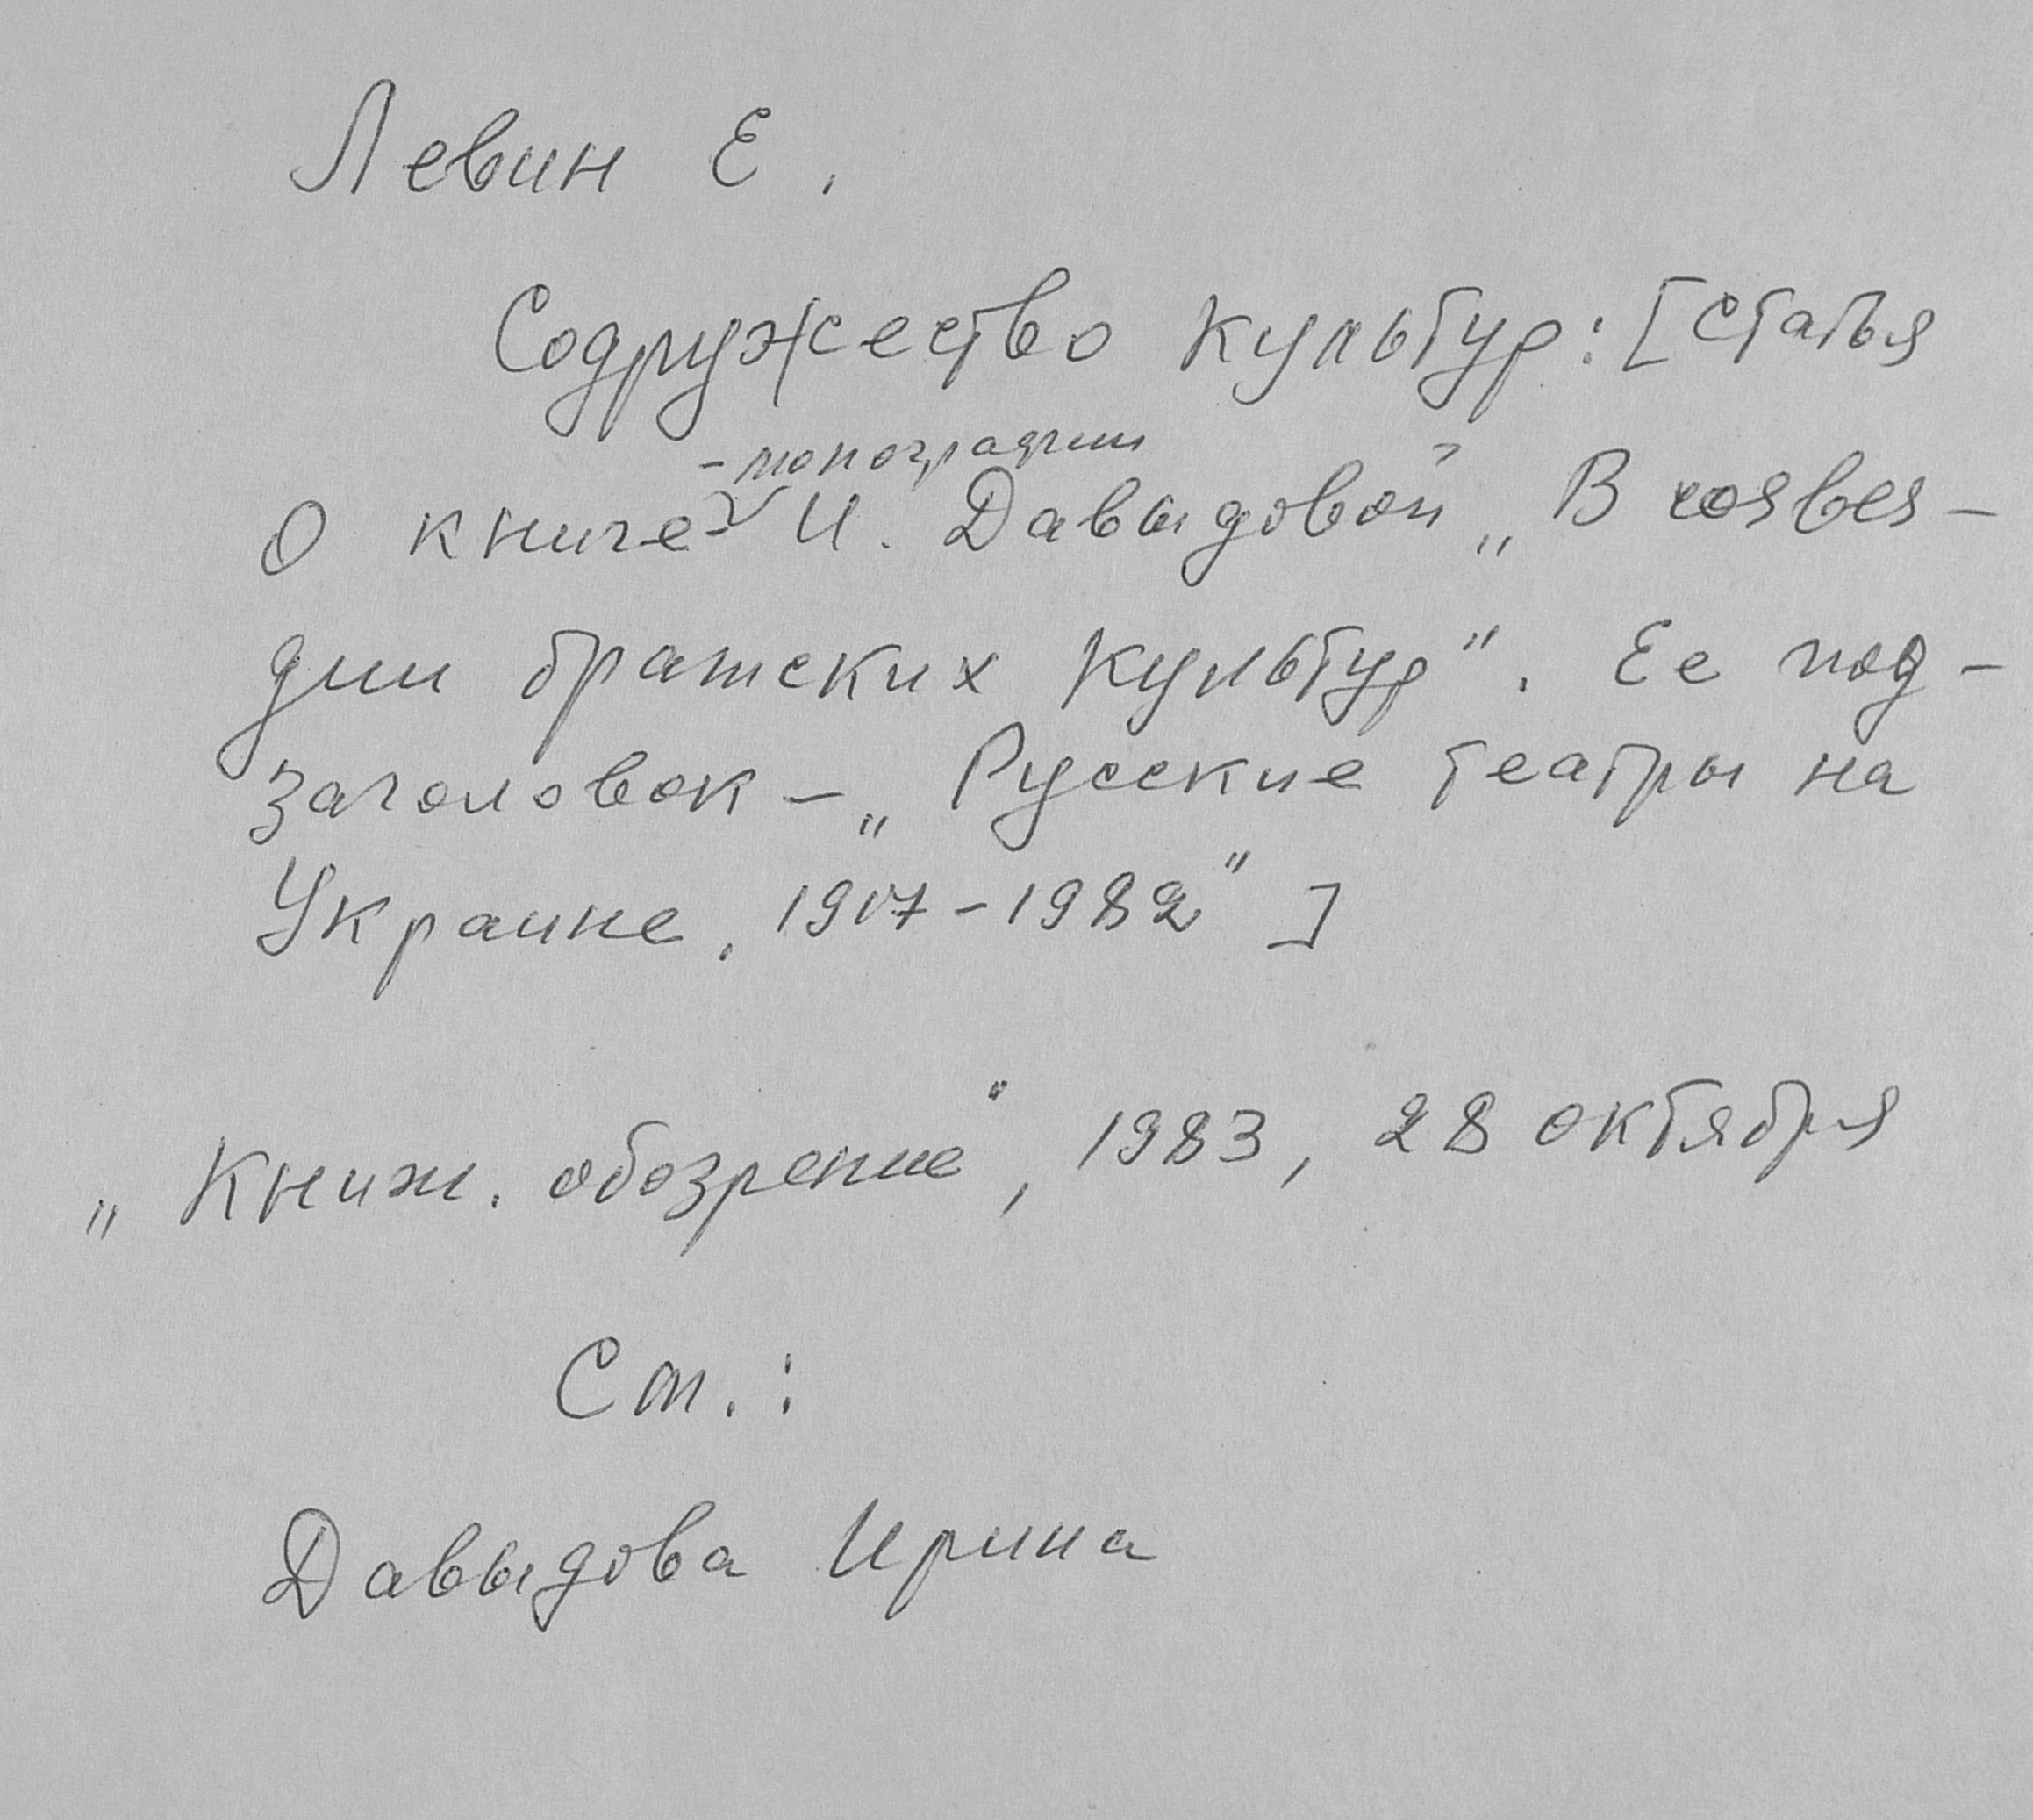 Левин Е.
Содружество культур: [Статья
-монографии
о книге И. Давыдовой „В созвез-
дии братских культур". Ее под-
заголовок – „Русские театры на
Украине. 1917-1982"]
„Книжн. обозрение", 1983, 28 октября
См.:
Давыдова Ирина